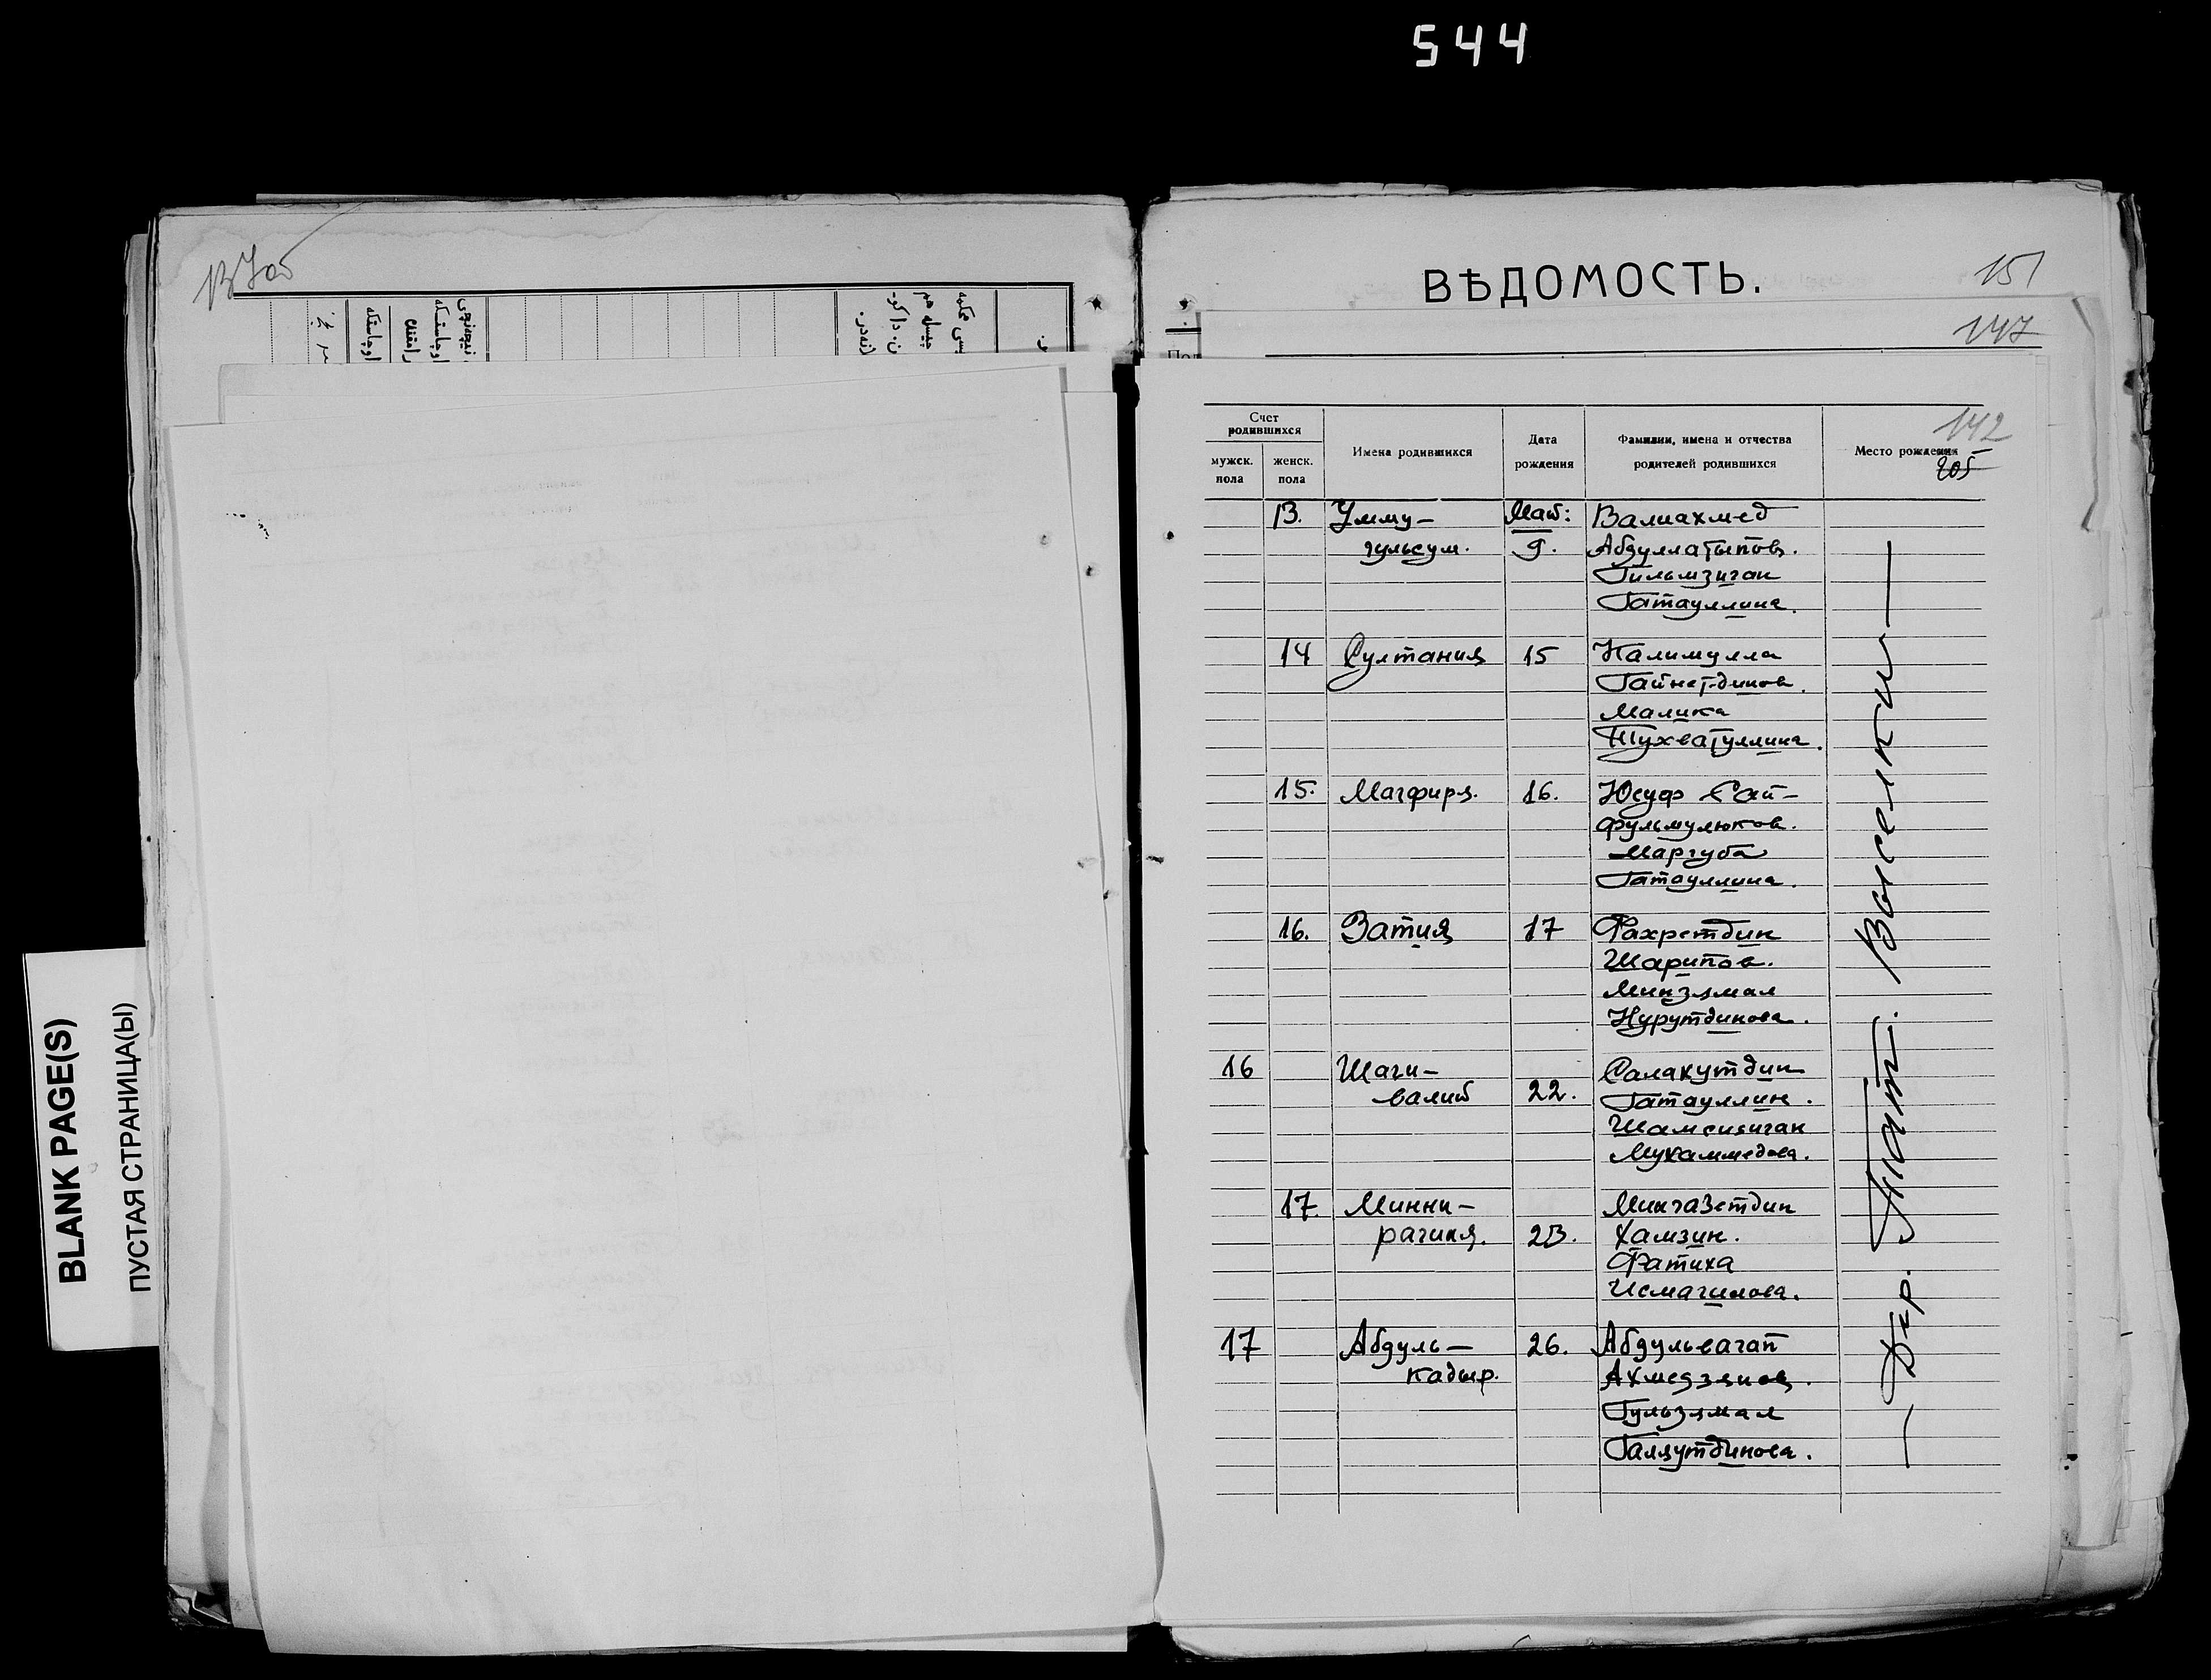 544
ВѢДОМОСТЬ.
151
147
142
205
BLANK PAGE(S)
ПУСТАЯ СТРАНИЦА(Ы)
Счет родившихся
мужск. пола
женск. пола
Имена родившихся
Дата рождения
Фамилии, имена и отчества родителей родившихся
Место рождения
13. Умму- Май: Валиахмед
гульсум. 9. Абдуллатыпов.
Гильмзиган
Гатауллина.
14 Султания 15 Калимулла
Гайнетдинов.
Малика
Тухватуллина.
15. Магфиря. 16. Юсуф Сай-
фульмулюков.
Маргуба
Гатауллина.
16. Затия 17 Фахретдин
Шарипов.
Минзямал
Нурутдинова.
16 Шаги- Салахутдин
валий 22. Гатауллин.
Шамсизиган
Мухаммедова.
17. Минни- Мингазетдин
рагиля. 23. Хамзин.
Фатиха
Исмагилова.
17 Абдуль- 26. Абдульвагап
кадыр. Ахмедзянов.
Гульзямал
Галяутдинова.
— Дер. Тат. Выселки —